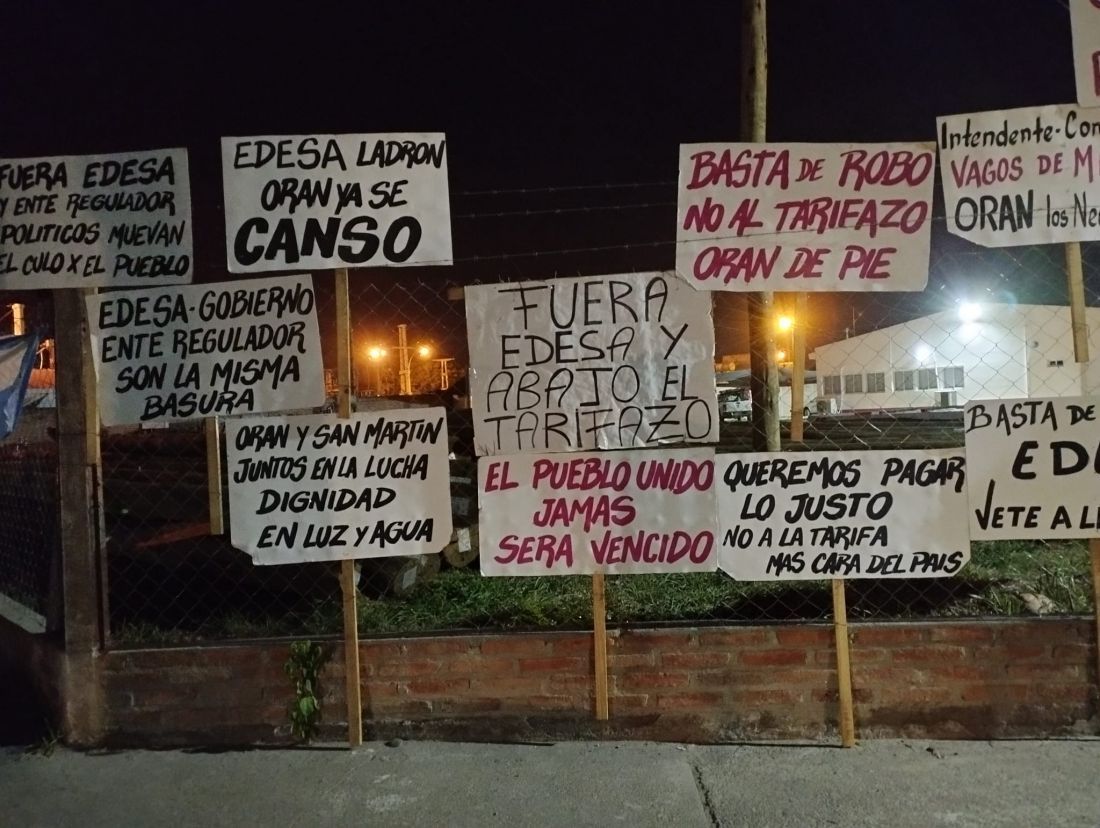 FUERA EDESA
Y ENTE REGULADOR
POLITICOS MUEVAN
EL CULO X EL PUEBLO
EDESA LADRON
ORAN YA SE
CANSO
EDESA-GOBIERNO
ENTE REGULADOR
SON LA MISMA
BASURA
ORAN Y SAN MARTIN
JUNTOS EN LA LUCHA
DIGNIDAD
EN LUZ Y AGUA
FUERA
EDESA Y
ABAJO EL
TARIFAZO
EL PUEBLO UNIDO
JAMAS
SERA VENCIDO
BASTA DE ROBO
NO AL TARIFAZO
ORAN DE PIE
QUEREMOS PAGAR
LO JUSTO
NO A LA TARIFA
MAS CARA DEL PAIS
Intendente-Con
VAGOS DE M
ORAN los Ne
BASTA DE
EDE
VETE A L